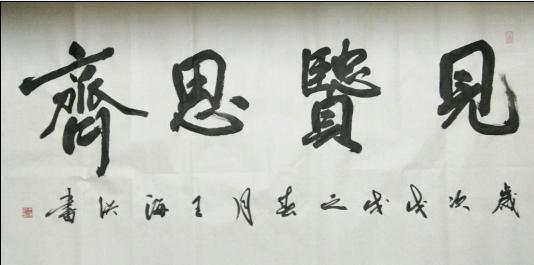 見賢思齊
歲次戊戌之春月王海洪書